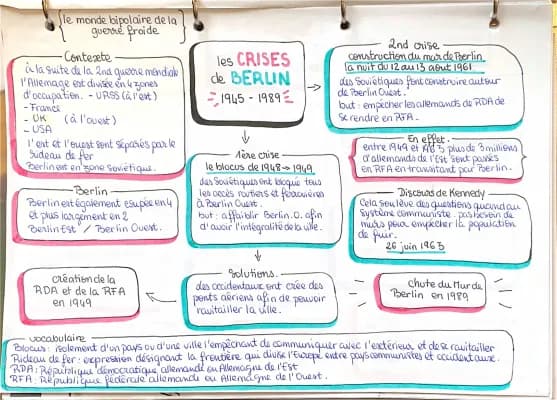 le monde bipolaire de la
guerre froide
Contexte
à la suite de la 2nd guerre mondiale
l'Allemage est divisée en 4 zones
d'occupation. - URSS (à l'est)
- France
- UK (à l'ouest)
- USA
l'est et l'ouest sont séparés par le
rideau de fer
Berlin est en zone soviétique.
Berlin
Berlin est également coupée en 4
et plus largement en 2
Berlin Est / Berlin Ouest.
création de la
RDA et de la RFA
en 1949
les CRISES
de BERLIN
1945 - 1989
1ère crise
le blocus de 1948 → 1949
les Soviétiques ont bloqué tous
les accès routiers et ferroviaires
à Berlin Ouest.
but : affaiblir Berlin. O. afin
d'avoir l'intégralité de la ville.
Solutions.
les occidentaux ont crée des
ponts aériens afin de pouvoir
ravitailler la ville.
2nd crise
construction du mur de Berlin
la nuit du 12 au 13 août 1961
les Soviétiques font construire autour
de Berlin Ouest.
but : empêcher les allemands de RDA de
se rendre en RFA.
En effet.
entre 1949 et plus de 3 millions
d'allemands de l'Est sont passés
en RFA en transitant par Berlin.
Discours de Kennedy
Cela soulève des questions quand au
système communiste. pas besoin de
murs pour empêcher la population
de fuir.
26 juin 1963
chute du Mur de
Berlin en 1989
vocabulaire
Blocus : isolement d'un pays ou d'une ville l'empêchant de communiquer avec l'extérieur et de se ravitailler
Rideau de fer : expression désignant la frontière qui divise l'Europe entre pays communistes et occidentaux.
RDA : République démocratique allemande ou Allemagne de l'Est
RFA : République fédérale allemande ou Allemagne de l'Ouest.